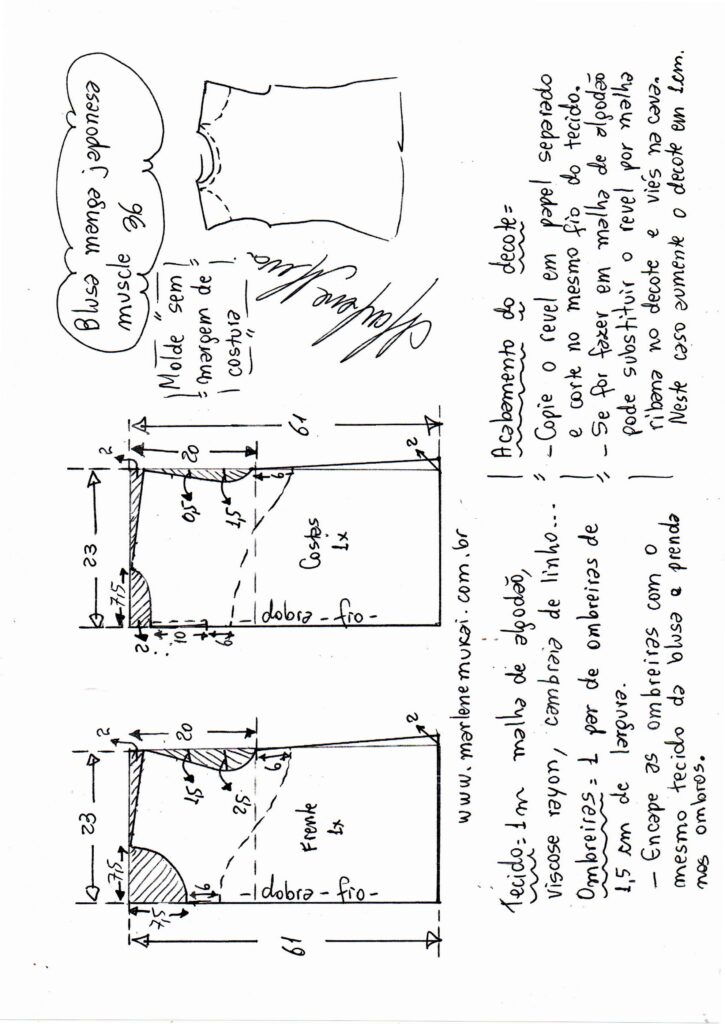 Blusa manga japonesa
muscle
36
Molde sem
margem de
costura
Marlene Mukai
23
7,5
7,5
2
20
1,5
2,5
6
6
61
2
Frente
1x
-dobra-fio-
23
7,5
2
2
20
0,5
1,5
10
6
6
61
2
Costas
1x
-dobra-fio-
www.marlenemukai.com.br
Tecido=1m malha de algodão,
viscose rayon, cambraia de linho...
Ombreiras=1 par de ombreiras de
1,5 cm de largura.
- Encape as ombreiras com o
mesmo tecido da blusa e prenda
nos ombros.
Acabamento do decote=
- Copie o revel em papel separado
e corte no mesmo fio do tecido.
- Se for fazer em malha de algodão
pode substituir o revel por malha
ribana no decote e viés na cava.
Neste caso aumente o decote em 1cm.